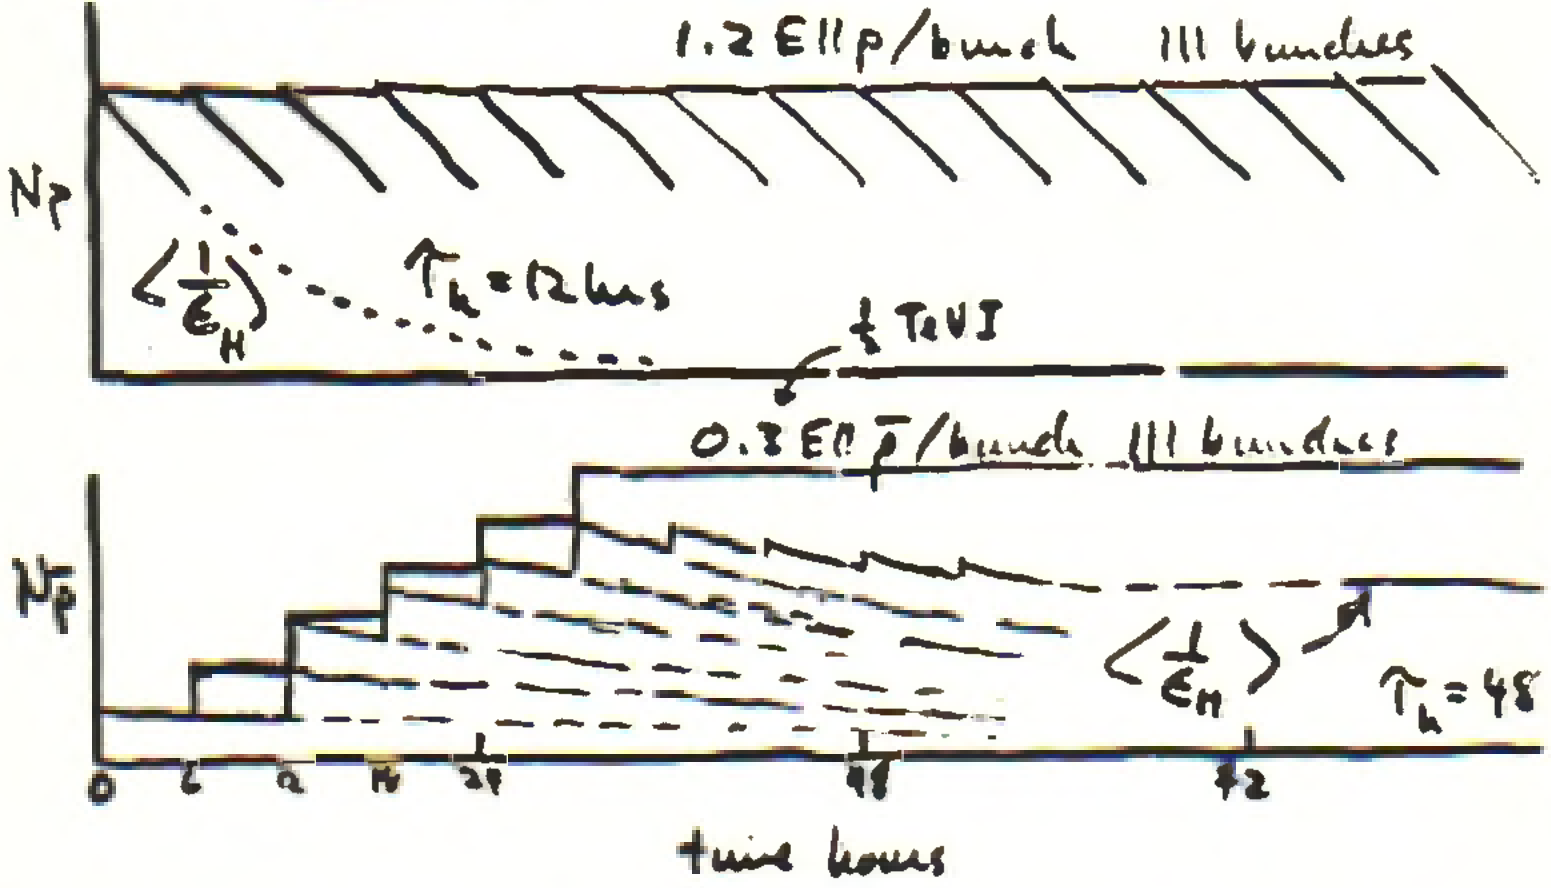 1.2 E11 p/bunch 111 bunches
Np
⟨1/ϵH⟩ τh = 12 hrs
TeVI
0.3 E11 p̄/bunch 111 bunches
Np̄
⟨1/ϵH⟩
τh = 48
0 6 12 18 24 48 72
time hours